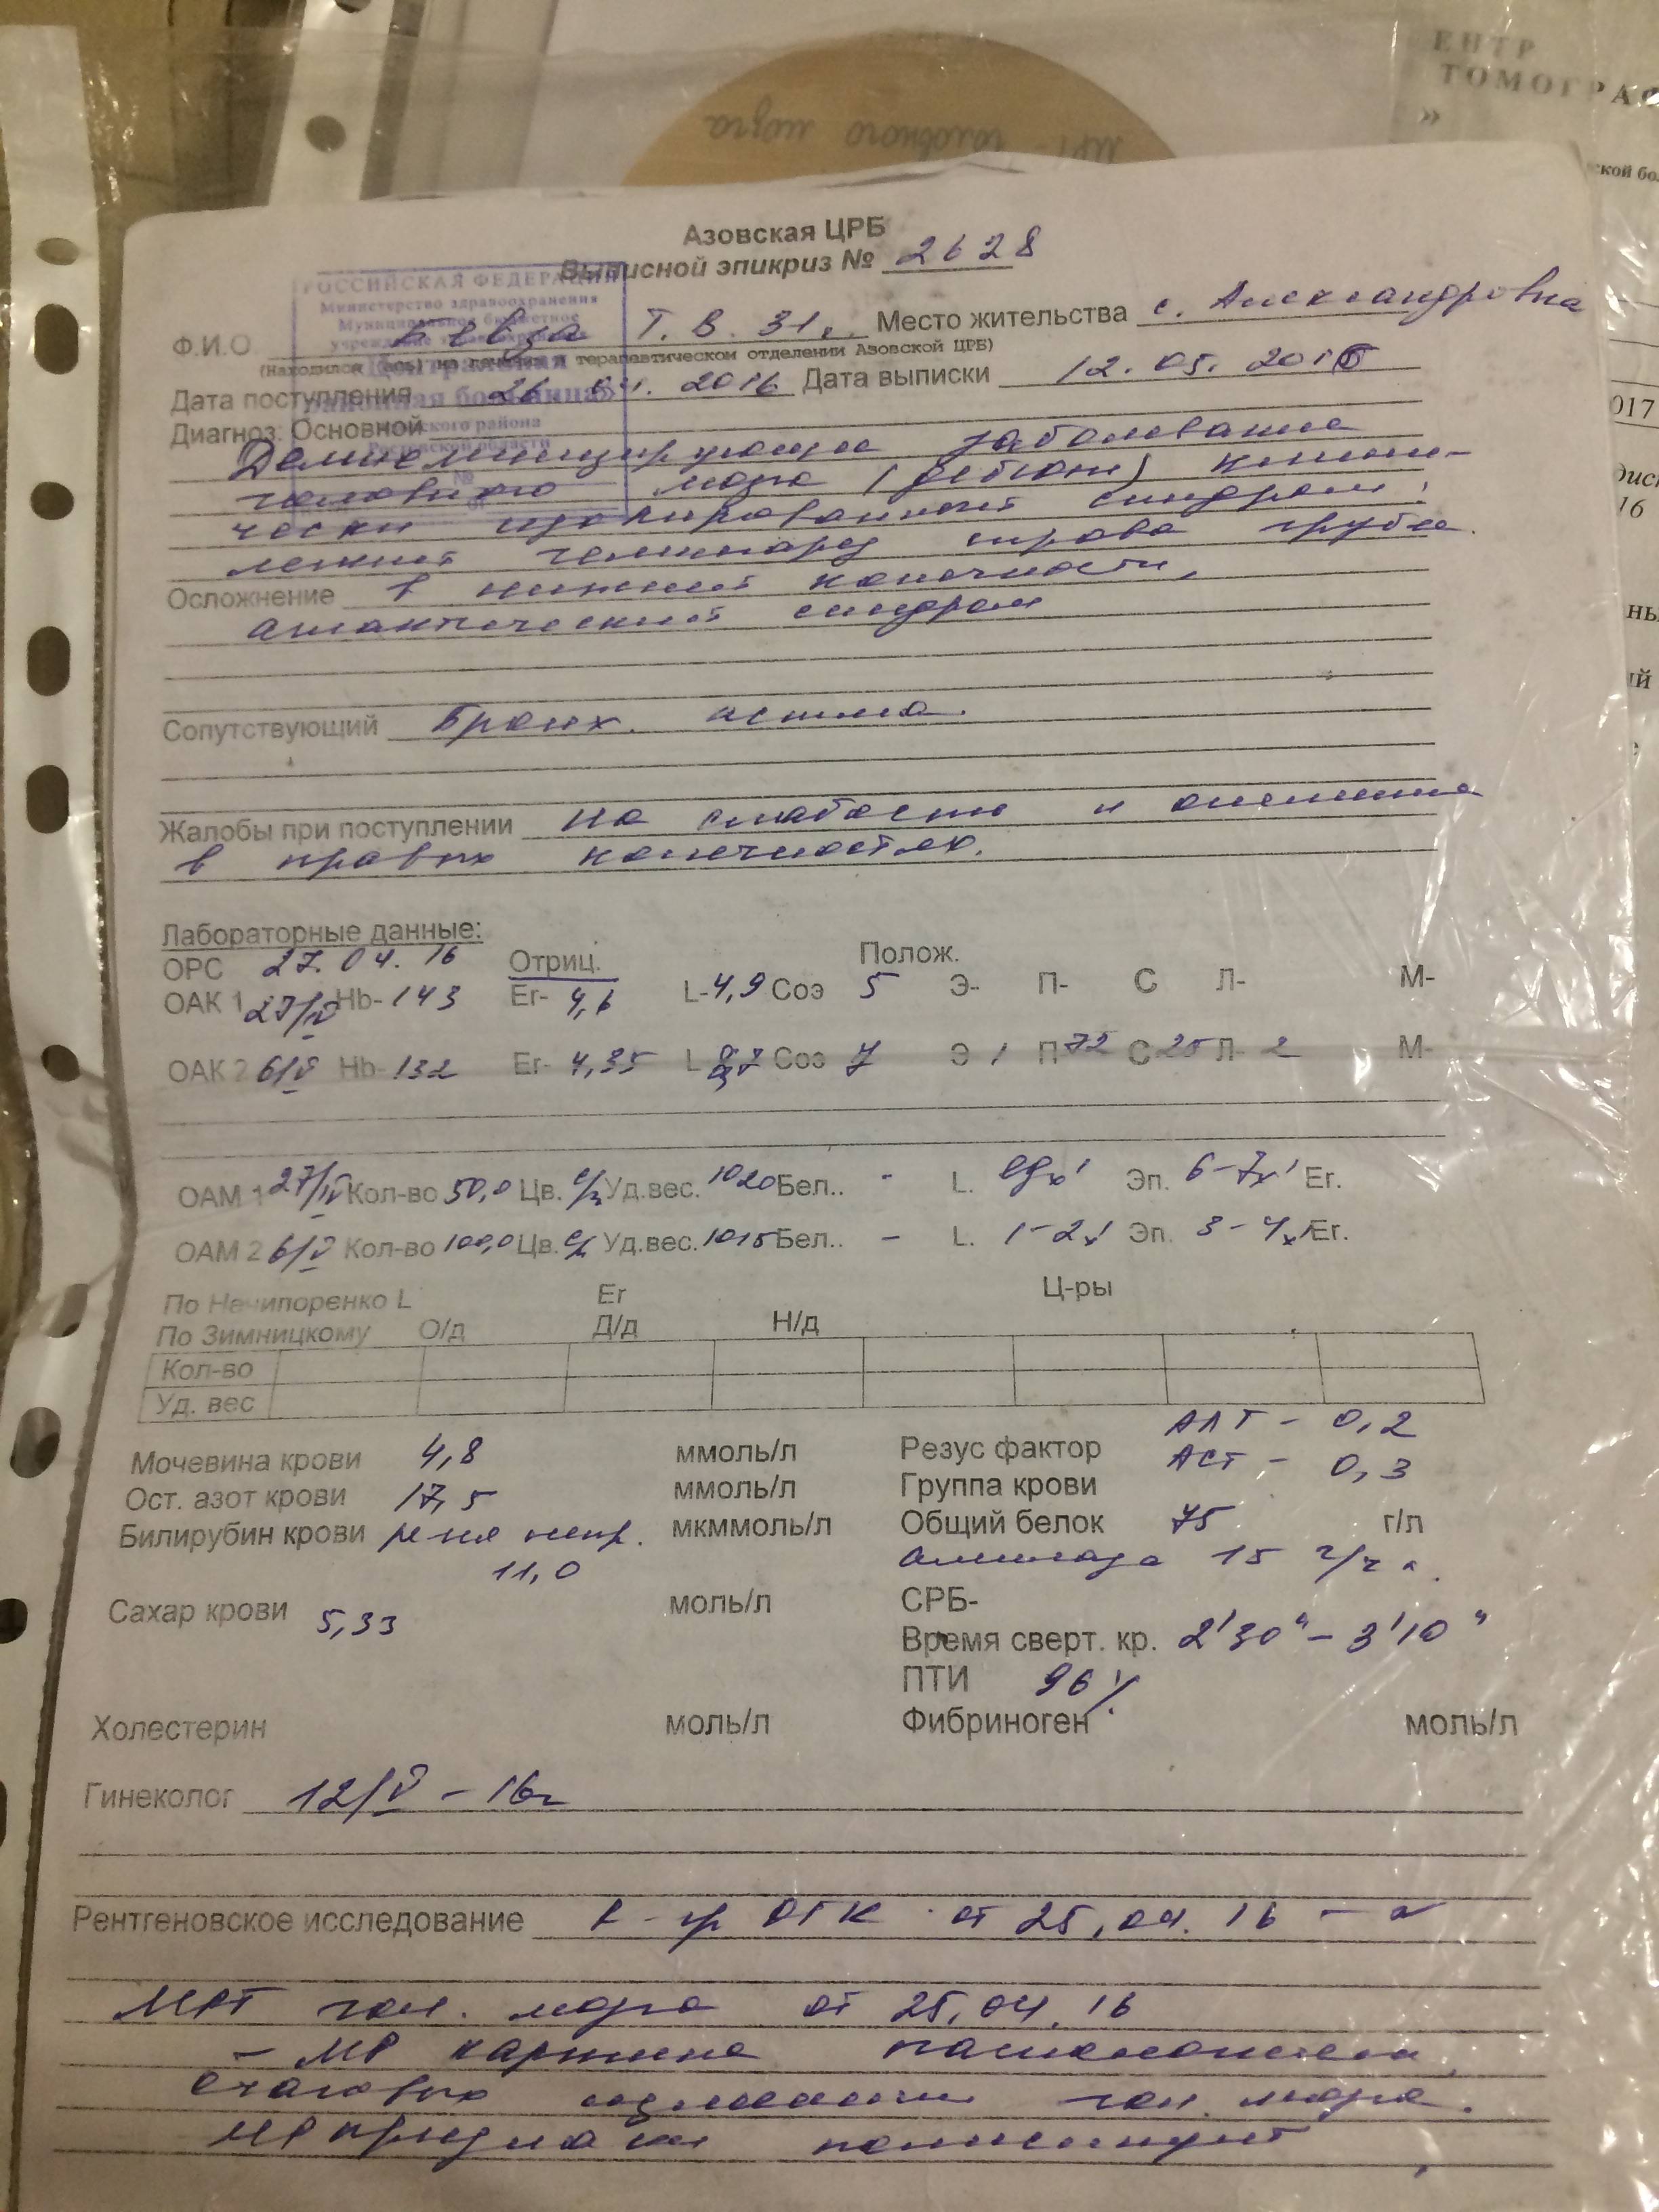 ЕНТР
ТОМОГРАФ
»
МРТ головного мозга
ской бол
Азовская ЦРБ
Выписной эпикриз № 2628
РОССИЙСКАЯ ФЕДЕРАЦИЯ
Министерство здравоохранения
Муниципальное бюджетное
Ф.И.О. Т. В. 31г. Место жительства с. Александровка
(находился (ась) на лечении в терапевтическом отделении Азовской ЦРБ)
Дата поступления 26. 04. 2016 Дата выписки 12. 05. 2016
017
Диагноз: Основной
Демиелинизирующее заболевание
головного мозга (дебют) клини-
чески изолированный синдром:
16
легкий гемипарез справа грубее
Осложнение в нижней конечности,
атактический синдром
Сопутствующий Бронх. астма.
Жалобы при поступлении на слабость и онемение
в правых конечностях.
Лабораторные данные:
ОРС 27. 04. 16 Отриц. Полож.
ОАК 1 27/IV Hb- 143 Er- 4,6 L- 4,9 Соэ 5 Э- П- С Л- М-
ОАК 2 6/V Hb- 132 Er- 4,35 L Соэ 7 Э 1 П 72 С 25 Л- 2 М-
ОАМ 1 27/IV Кол-во 50,0 Цв. с/ж Уд.вес. 1020 Бел.. - L. Эп. 6-7 Er.
ОАМ 2 6/V Кол-во 100,0 Цв. с/ж Уд.вес. 1015 Бел.. - L. 1-2 Эп. 3-4 Er.
По Нечипоренко L Er Ц-ры
По Зимницкому О/д Д/д Н/д
Кол-во
Уд. вес
АЛТ - 0,2
Мочевина крови 4,8 ммоль/л Резус фактор АСТ - 0,3
Ост. азот крови 17,5 ммоль/л Группа крови
Билирубин крови непр. мкммоль/л Общий белок 75 г/л
11,0 амилаза 15
Сахар крови 5,33 моль/л СРБ-
Время сверт. кр. 2'30" - 3'10"
ПТИ 96%
Холестерин моль/л Фибриноген моль/л
Гинеколог 12/V - 16г
Рентгеновское исследование R-гр ОГК от 25.04.16 - N
МРТ гол. мозга от 25.04.16
- МР картина
очаговых изменений гол. мозга.
МР признаки полисинусит